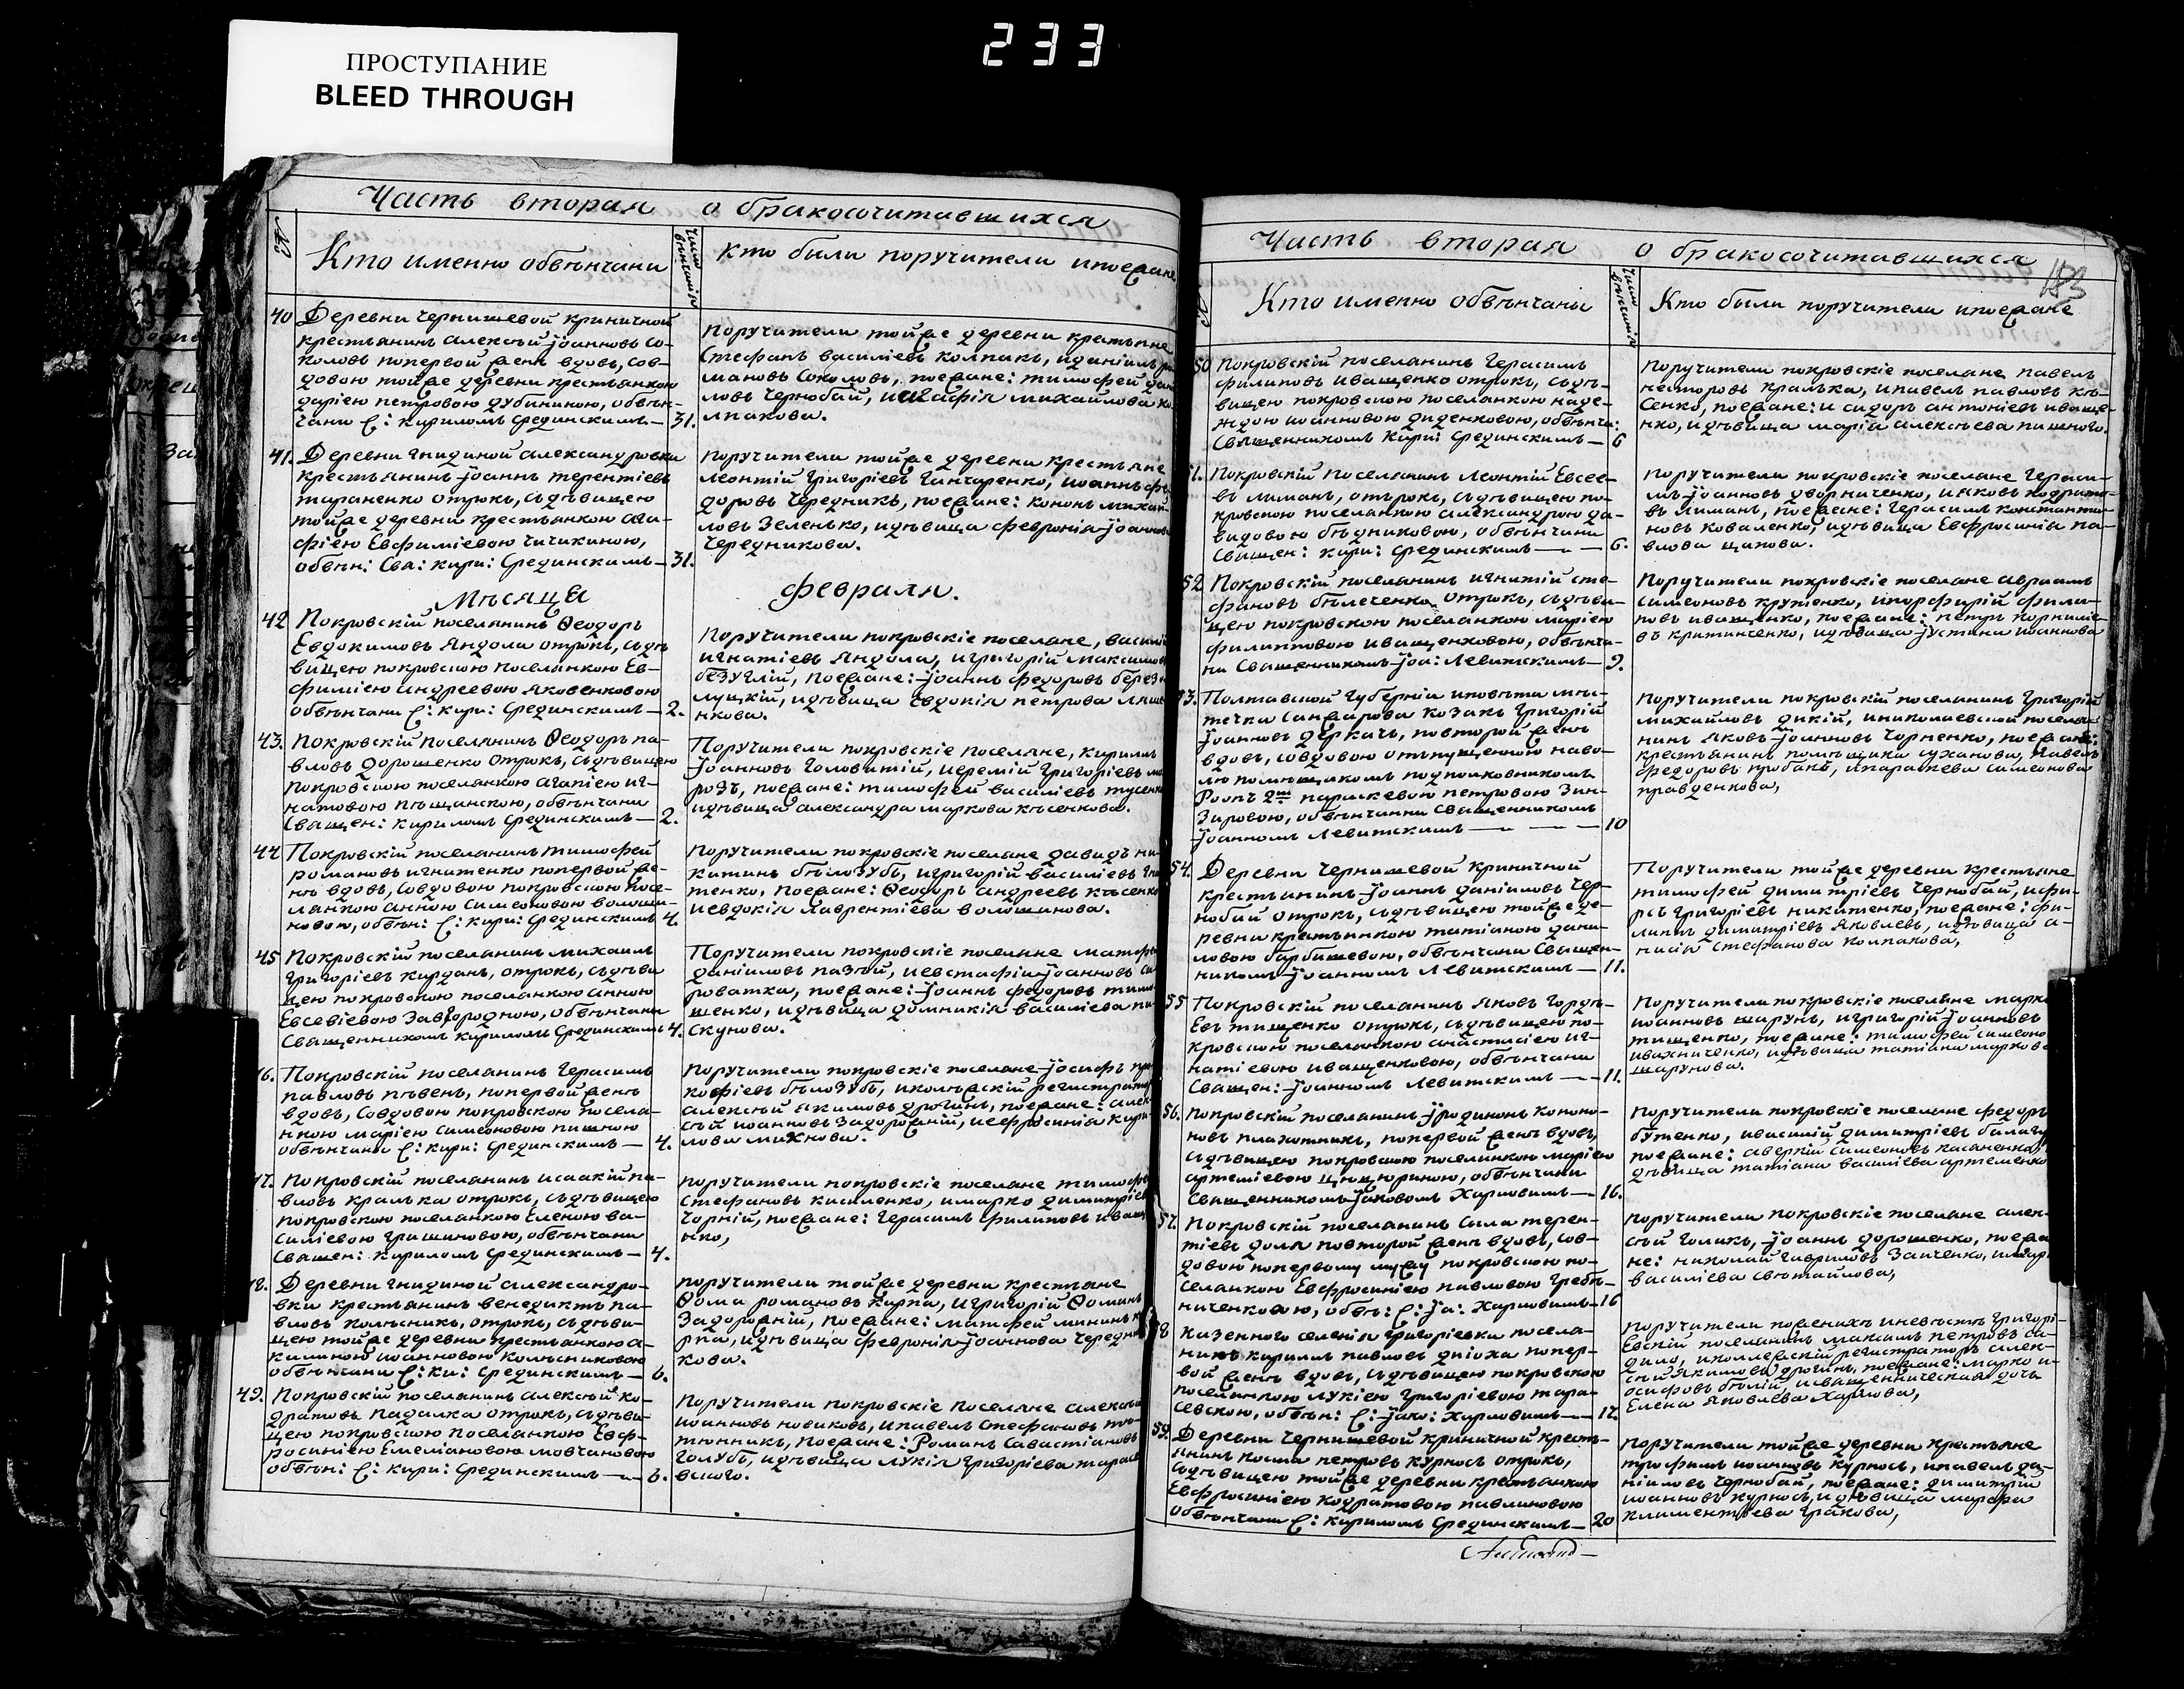 233
ПРОСТУПАНИЕ
BLEED THROUGH
Часть вторая о бракосочитавшихся
№
Кто именно обвѣнчани
Число вѣнчанія
Кто были поручители
40 Деревни Чернишевой Криничной
крестьянинъ Алексѣй Іоанновъ Со-
коловъ попервой женѣ вдовъ, совъ-
довою тойже деревни крестьянкою
Даріею Петровою Дубининою, обвѣн-
чани С: Кириломъ Срединскимъ — 31.
Поручители тойже деревни крестьяне
Стефанъ Василіевъ Колпакъ, и Даніилъ
мановъ Соколовъ, поезжане: Тимофей
ловъ Чернобай, и Агафія Михайлова
лпакова.
41. Деревни Гнидиной Александровки
крестьянинъ Іоаннъ Терентіевъ
Тараненко отрокъ, съдѣвицею
тойже деревни крестьянкою Ага-
фіею Евфиміевою Чичикиною,
обвѣн: Свя: Кири: Срединскимъ — 31.
Поручители тойже деревни крестьяне
Леонтій Григоріевъ Ганчаренко, Иоаннъ
доровъ Чередникъ, поезжане: Кононъ
ловъ Зеленько, идѣвица Февронія Іоаннова
Чередникова.
Мѣсяца Февраля.
42 Покровскій поселянинъ Ѳеодоръ
Евдокимовъ Яндола отрокъ, съдѣ
вицею покровскою поселянкою Ев-
фиміею Андреевою Яковенковою
обвѣнчани С: Кири: Срединскимъ — 2.
Поручители покровскіе поселяне, Василій
Игнатіевъ Яндола, и Григорій Максимовъ
Безуглій, поезжане: Іоаннъ Федоровъ
луцкій, идѣвица Евдокія Петрова
нкова.
43. Покровскій поселянинъ Ѳеодоръ Па-
вловъ Дорошенко отрокъ, съдѣвицею
покровскою поселянкою Агапіею Иг-
натовою Пѣщанскою, обвѣнчани
Священ: Кириломъ Срединскимъ — 2.
Поручители покровскіе поселяне, Кирилъ
Іоанновъ Головитій, Иеремій Григоріевъ
розъ, поезжане: Тимофей Василіевъ
идѣвица Александра Маркова Кѣсенкова.
44 Покровскій поселянинъ Тимофей
Романовъ Игнатенко попервой же-
нѣ вдовъ, совдовою покровскою посе-
лянкою Анною Симеоновою Волоши-
новою, обвѣн: С: Кири: Срединскимъ 4.
Поручители покровскіе поселяне Давидъ Ни-
китинъ Бѣлозубъ, и Григорій Василіевъ
тенко, поезжане: Ѳеодоръ Андреевъ Кѣсенко
и Евдокія Лаврентіева Волошинова.
45 Покровскій поселянинъ Михаилъ
Григоріевъ Курданъ, отрокъ, съдѣви
цею покровскою поселянкою Анною
Евсевіевою Завгородною, обвѣнчани
Священникомъ Кириломъ Срединскимъ 4.
Поручители покровскіе поселяне
Даніиловъ Пазюй, и Евстафій Іоанновъ
роватка, поезжане: Іоаннъ Федоровъ
шенко, идѣвица Домникія Василіева
Скунова.
46. Покровскій поселянинъ Герасимъ
Павловъ Пѣвень, попервой женѣ
вдовъ, совдовою покровскою посела-
нкою Маріею Симеоновою Пишною
обвѣнчаны С: Кири: Срединскимъ — 4.
Поручители покровскіе поселяне Іосифъ
кофіевъ Бѣлозубъ, и Колежскій регистраторъ
Алексѣй Якимовъ Дрогинъ, поезжане:
сѣй Иоанновъ Задорожній, и Ефросинія Кири
лова Михнова.
47. Покровскій поселянинъ Исаакій Па-
вловъ Кралька отрокъ, съдѣвицею
покровскою поселянкою Еленою Ва-
силіевою Гришиновою, обвѣнчани
Священ: Кириломъ Срединскимъ — 4.
Поручители покровскіе поселяне Тимофей
Стефановъ Кисиленко, и Марко Димитріевъ
Чорній, поезжане: Герасимъ Филиповъ
нко,
48. Деревни Гнидиной Александро-
вки крестьянинъ Венедиктъ Па-
вловъ Колѣсникъ, отрокъ, съдѣви-
цею тойже деревни крестьянкою А-
килиною Иоанновою Колѣсниковою
обвѣнчани С: Ки: Срединскимъ — 6.
Поручители тойже деревни крестьяне
Ѳома Романовъ Карпа, и Григорій Ѳоминъ
Задорожній, поезжане: Матфей Мининъ
рпа, идѣвица Февронія Іоаннова Черед
кова.
49. Покровскій поселянинъ Алексѣй Ко-
дратовъ Падалка отрокъ, съдѣви-
цею покровскою поселянкою Евф-
росиніею Емеліановою Мовчановою
обвѣн: С: Кири: Срединскимъ — 6.
Поручители покровскіе поселяне Алексѣй
Иоанновъ Новиковъ, и Павелъ Стефановъ
тюнникъ, поезжане: Романъ Савастіановъ
Голубъ, идѣвица Лукія Григоріева
вского.
Часть вторая о бракосочитавшихся
Кто именно обвѣнчаны
Число вѣнчанія
Кто были поручители ипоезжане
50 Покровскій поселянинъ Герасимъ
Филиповъ Иващенко отрокъ, съдѣ-
вицею покровскою поселянкою Наде-
ждою Иоанновою Диденковою, обвѣнча:
Священникомъ Кири: Срединскимъ — 6
Поручители покровскіе поселяне Павелъ
Несторовъ Кралька, и Павелъ Павловъ Кѣ-
сенко, поезжане: и Сидоръ Антоніевъ Иваще-
нко, идѣвица Марія Алексѣева Пишного.
51. Покровскій поселянинъ Леонтій Евсее-
въ Лиманъ, отрокъ, съдѣвицею по-
кровскою поселянкою Александрою Да-
видовою Бѣдниковою, обвѣнчани
Священ: Кири: Срединскимъ — 6.
Поручители покровскіе поселяне Гераси-
мъ Іоанновъ Дворниченко, и Яковъ Кодрато-
въ Лиманъ, поезжане: Герасимъ Константи-
новъ Коваленко, идѣвица Евфросинія Па-
влова Цапова.
52 Покровскій поселянинъ Игнатій Сте-
фановъ Бѣлеченко отрокъ, съдѣви-
цею покровскою поселянкою Маріею
Филиповою Иващенковою, обвѣнча-
ни Священникомъ Іоа: Левитскимъ — 9.
Поручители покровскіе поселяне Авраамъ
Симеоновъ Крутенко, и Порфирій Фили-
повъ Иващенко, поезжане: Петръ Корниліе-
въ Критинсенко, идѣвица Іустина Иоаннова
53. Полтавской Губерніи иповѣта мѣс-
течка Санжарова козакъ Григорій
Іоанновъ Деркачъ, повторой женѣ
вдовъ, совдовою отпущенною наво-
лю помѣщикомъ подполковникомъ
Роопъ 2мъ Параскевою Петровою Зин-
зировою, обвѣнчанни Священникомъ
Іоанномъ Левитскимъ — 10
Поручители покровскій поселянинъ Григорій
Михайловъ Дикій, и николаевской поселя-
нинъ Яковъ Іоанновъ Чорненко, поезжане:
крестьянинъ помѣщика Суханова, Павелъ
Федоровъ Пробакъ, и Параскева Симеонова
Правденкова,
54. Деревни Чернишевой Криничной
крестьянинъ Іоаннъ Даніиловъ Чер-
нобай отрокъ, съдѣвицею тойже де-
ревни крестьянкою Татіаною Дани-
ловою Барбишевою, обвѣнчани Священ-
никомъ Іоанномъ Левитскимъ — 11.
Поручители тойже деревни крестьяне
Тимофей Димитріевъ Чернобай, и Фи-
рсъ Григоріевъ Никитенко, поезжане: Фи-
липъ Димитріевъ Яковлевъ, идѣвица А-
нисія Стефанова Колпакова,
55 Покровскій поселянинъ Яковъ Гордѣ-
евъ Тищенко отрокъ, съдѣвицею по-
кровскою поселянкою Анастасіею Иг-
натіевою Иващенковою, обвѣнчани
Священ: Іоанномъ Левитскимъ — 11.
Поручители покровскіе поселяне Марко
Иоанновъ Шарунъ, и Григорій Іоанновъ
Тищенко, поезжане: Тимофей Симеоно
Ивахниченко, идѣвица Татіана Маркова
Шарунова.
56. Покровскій поселянинъ Іродионъ Кононо-
новъ Плахотникъ, попервой женѣ вдовъ,
съдѣвицею покровскою поселянкою Маріею
Артеміевою Цюцюриною, обвѣнчани
Священникомъ Іаковомъ Харловимъ — 16.
Поручители покровскіе поселяне Федоръ
Бутенко, и Василій Димитріевъ
поезжане: Аверкій Симеоновъ Касаненко,
дѣвица Татіана Василіева Артеменко
57. Покровскій поселянинъ Сила Терен-
тіевъ Доля повторой женѣ вдовъ, сов-
довою попервому мужу покровскою по-
селянкою Евфросиніею Павловою Гребѣ-
ниченковою, обвѣ: С: Іа: Харловимъ — 16
Поручители покровскіе поселяне Алек-
сѣй Голикъ, Іоаннъ Дорошенко, поезжа
не: Николай Гавриловъ Заиченко,
Василіева Свѣтайлова,
58 Казенного селенія Григоріевки посела-
нинъ Кирилъ Павловъ Дніоха попер-
вой женѣ вдовъ, съдѣвицею покровскою
поселянкою Лукіею Григоріевою Тара-
севскою, обвѣн: С: Іако: Харловимъ — 17.
Поручители поженихѣ иневѣстѣ Григорі-
евскій поселянинъ Максимъ Петровъ Са-
дило, и Колежскій регистраторъ Алек-
сѣй Якимовъ Дрогинъ, поезжане: Марко И-
осифовъ Бѣлій, и священническая дочь
Елена Яковлева Харлова,
59. Деревни Чернишевой Криничной кресть-
янинъ Косма Петровъ Курносъ отрокъ,
съдѣвицею тойже деревни крестьянкою
Евфросиніею Кодратовою Павлиновою
обвѣнчани С: Кириломъ Срединскимъ — 20
Поручители тойже деревни крестьяне
Трофимъ Иоанновъ Курносъ, и Павелъ Да-
ніиловъ Чернобай, поезжане: Димитрій
Иоанновъ Курносъ, идѣвица Марфа
Климентіева Гракова,